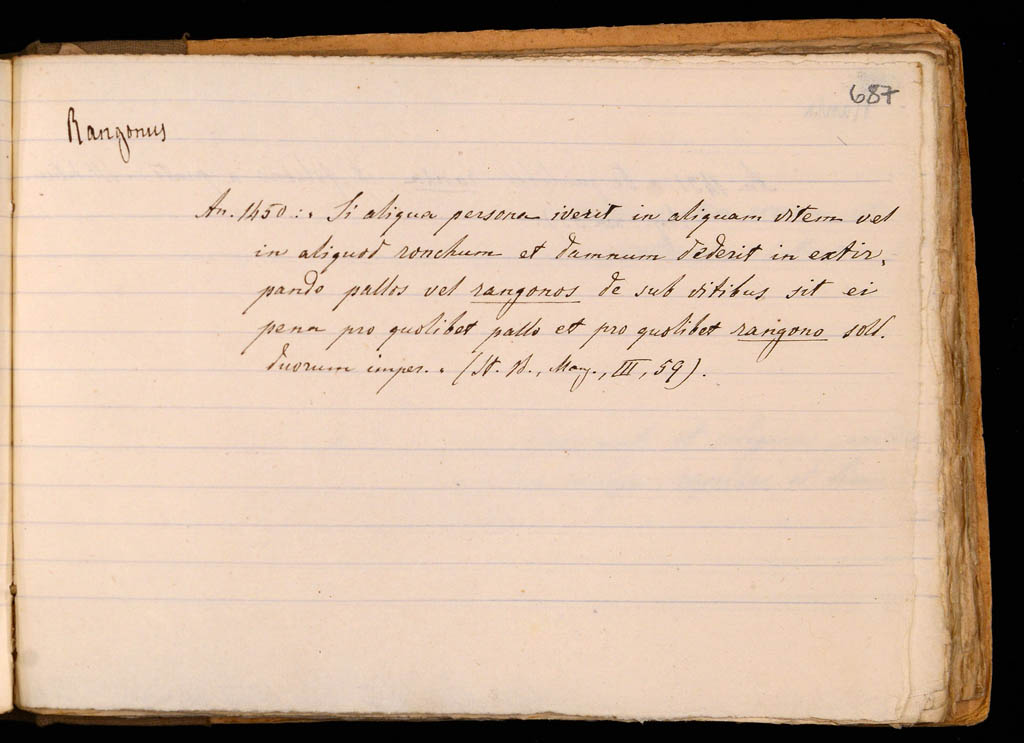 687
Rangonus
An. 1450: « Si aliqua persona iverit in aliquam vitem vel
in aliquod ronchum et damnum dederit in extir,
pando pallos vel rangonos de sub vitibus sit ei
pena pro quolibet pallo et pro quolibet rangono sold.
duorum imper. » (St. B., Mang., III, 59).